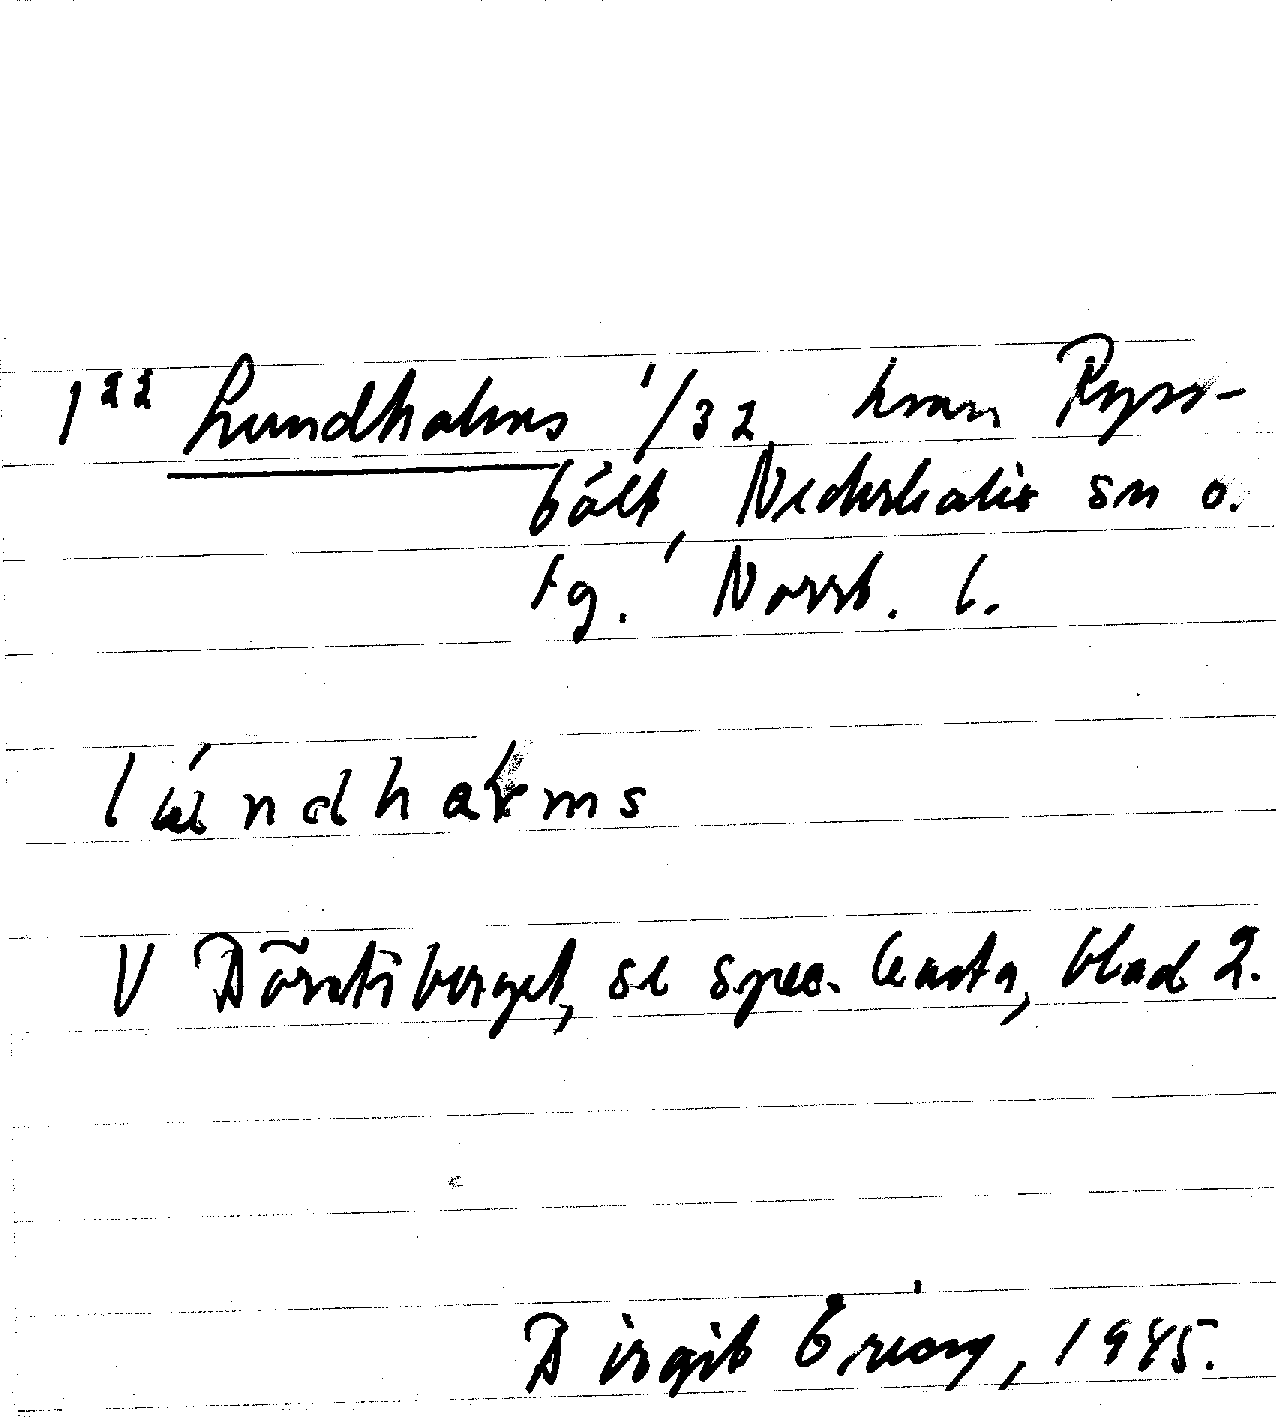 1²² Lundholms 1/32 hman Ryss-
bält, Nederkalix sn o.
tg. Norrb. l.
lundhalms
V Börstiberget, se spec. karta, blad 2.
Birgit Eriom, 1945.